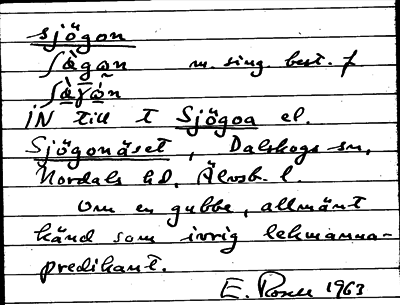 sjögon
ʃàgan m. sing. best. f
ʃàɣɷ̃n
IN till t Sjögoa el.
Sjögonäset, Dalskogs sn,
Nordals hd, Älvsb. l.
Om en gubbe, allmänt
känd som ivrig lekmanna-
predikant.
E. Rosell 1963